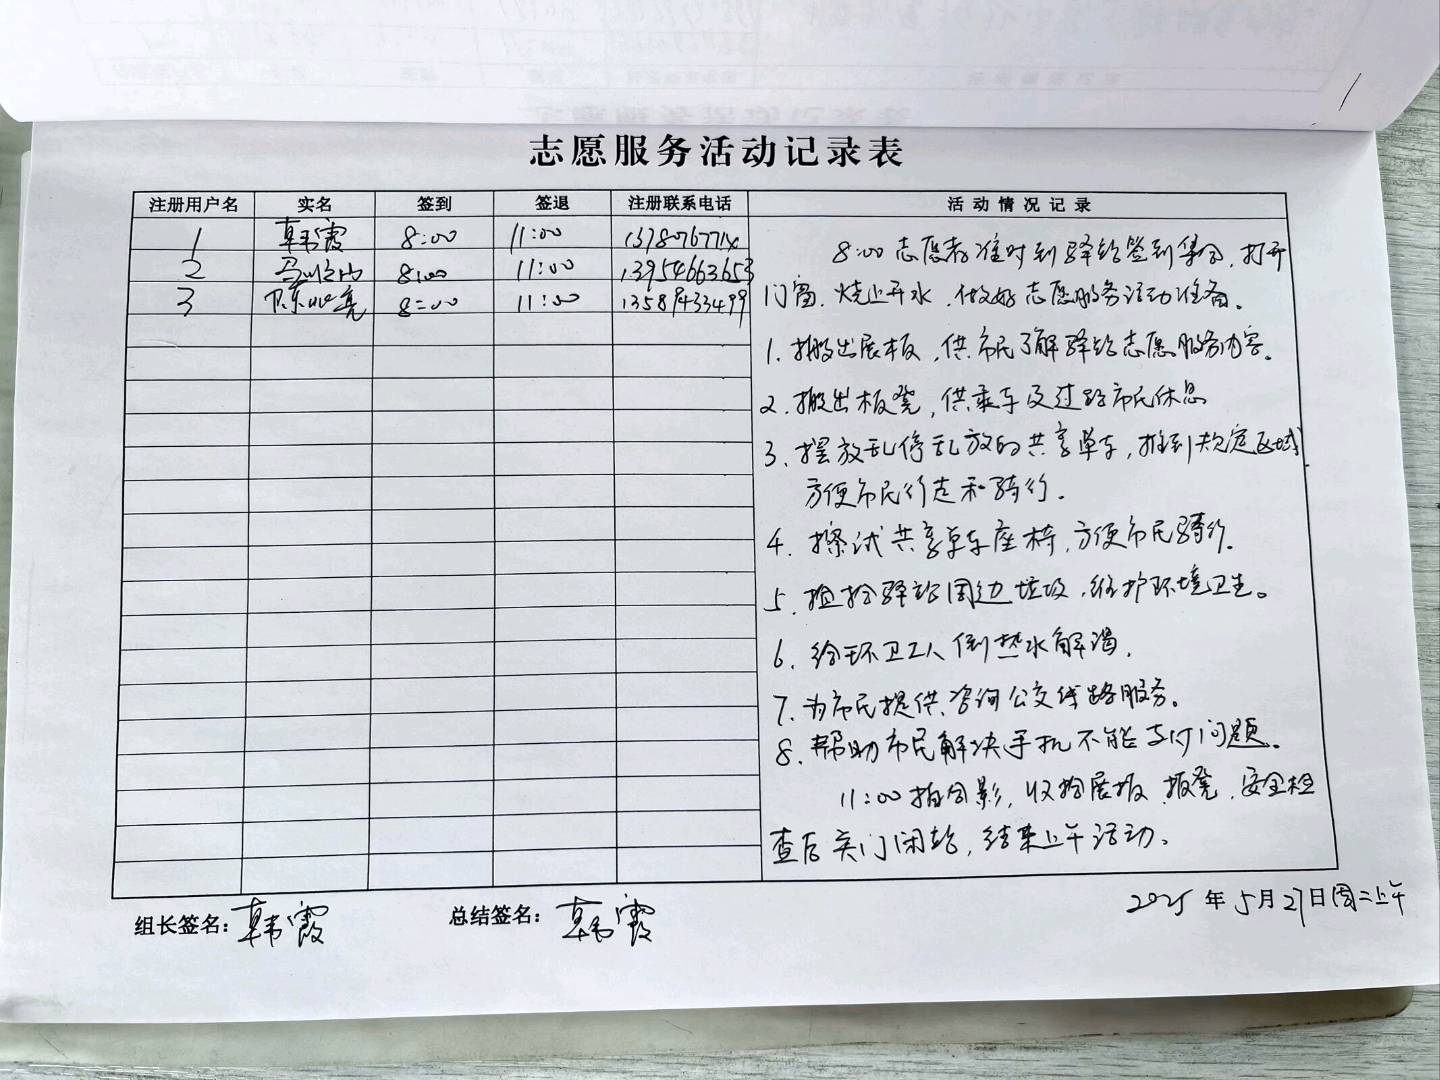 志愿服务活动记录表
注册用户名 实名 签到 签退 注册联系电话 活动情况记录
1 韩霞 8:00 11:00
2 8:00 11:00 13954663653
3 8:00 11:00 13589433499
8:00志愿者准时到驿站签到集合,打开
门窗,烧上开水,做好志愿服务活动准备。
1.搬出展板,供市民了解驿站志愿服务内容。
2.搬出板凳,供乘车及过路市民休息
3.摆放乱停乱放的共享单车,推到规定区域,
方便市民行走和骑行.
4.擦试共享单车座椅,方便市民骑行.
5.捡拾驿站周边垃圾,维护环境卫生。
6.给环卫工人倒热水解渴.
7.为市民提供咨询公交线路服务。
8.帮助市民解决手机不能支付问题。
11:00拍合影,收拾展板、板凳,安全检
查后关门闭站,结束上午活动。
组长签名:韩霞 总结签名:韩霞 2025年5月27日周二上午